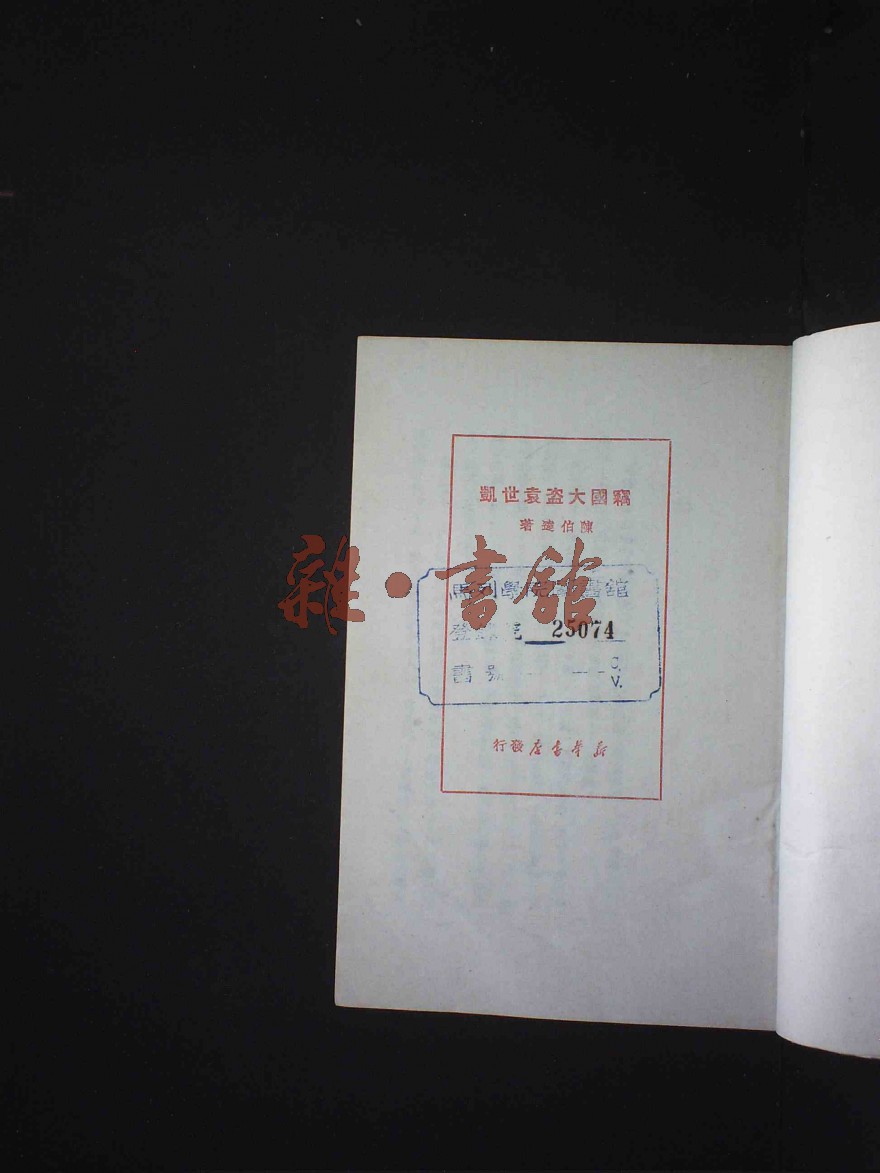 竊國大盜袁世凱
陳伯達著
雜·書館
馬列學院圖書館
登錄號 25074
書號 C.
V.
新華書店發行